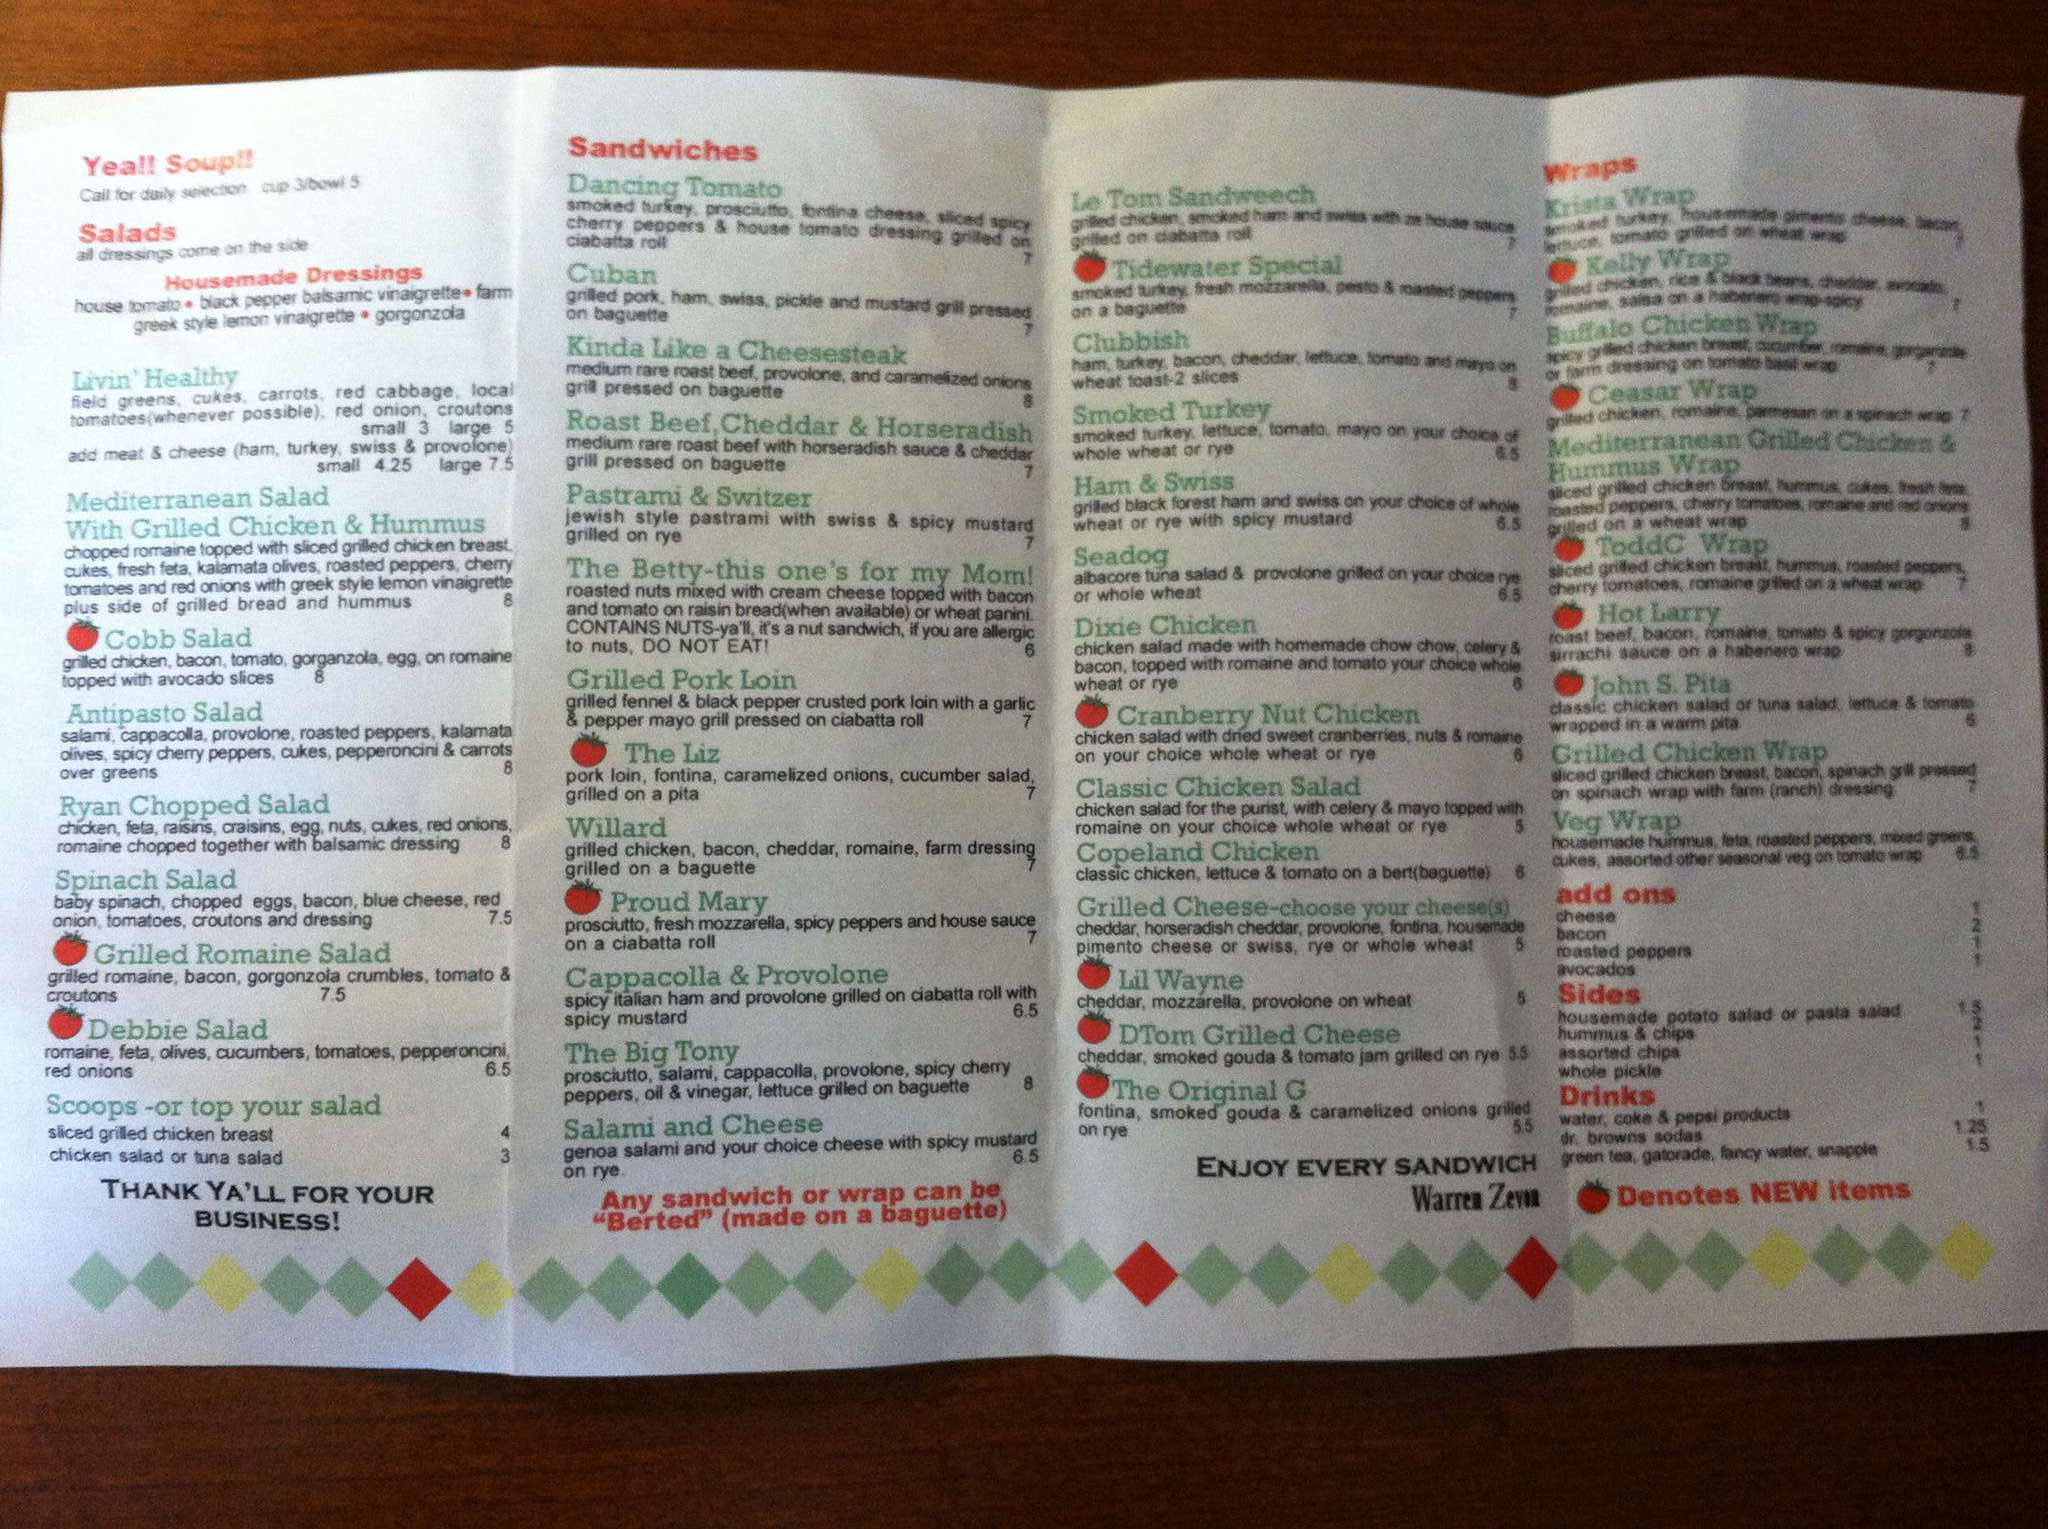 Yea!! Soup!!
Call for daily selection cup 3/bowl 5
Salads
all dressings come on the side
Housemade Dressings
house tomato • black pepper balsamic vinaigrette • farm
greek style lemon vinaigrette • gorgonzola
Livin' Healthy
field greens, cukes, carrots, red cabbage, local
tomatoes(whenever possible), red onion, croutons
small 3 large 5
add meat & cheese (ham, turkey, swiss & provolone)
small 4.25 large 7.5
Mediterranean Salad
With Grilled Chicken & Hummus
chopped romaine topped with sliced grilled chicken breast,
cukes, fresh feta, kalamata olives, roasted peppers, cherry
tomatoes and red onions with greek style lemon vinaigrette
plus side of grilled bread and hummus 8
Cobb Salad
grilled chicken, bacon, tomato, gorganzola, egg, on romaine
topped with avocado slices 8
Antipasto Salad
salami, cappacolla, provolone, roasted peppers, kalamata
olives, spicy cherry peppers, cukes, pepperoncini & carrots
over greens 8
Ryan Chopped Salad
chicken, feta, raisins, craisins, egg, nuts, cukes, red onions,
romaine chopped together with balsamic dressing 8
Spinach Salad
baby spinach, chopped eggs, bacon, blue cheese, red
onion, tomatoes, croutons and dressing 7.5
Grilled Romaine Salad
grilled romaine, bacon, gorgonzola crumbles, tomato &
croutons 7.5
Debbie Salad
romaine, feta, olives, cucumbers, tomatoes, pepperoncini,
red onions 6.5
Scoops -or top your salad
sliced grilled chicken breast 4
chicken salad or tuna salad 3
THANK YA'LL FOR YOUR
BUSINESS!
Sandwiches
Dancing Tomato
smoked turkey, prosciutto, fontina cheese, sliced spicy
cherry peppers & house tomato dressing grilled on
ciabatta roll 7
Cuban
grilled pork, ham, swiss, pickle and mustard grill pressed
on baguette 7
Kinda Like a Cheesesteak
medium rare roast beef, provolone, and caramelized onions
grill pressed on baguette 8
Roast Beef,Cheddar & Horseradish
medium rare roast beef with horseradish sauce & cheddar
grill pressed on baguette 7
Pastrami & Switzer
jewish style pastrami with swiss & spicy mustard
grilled on rye 7
The Betty-this one's for my Mom!
roasted nuts mixed with cream cheese topped with bacon
and tomato on raisin bread(when available) or wheat panini.
CONTAINS NUTS-ya'll, it's a nut sandwich, if you are allergic
to nuts, DO NOT EAT! 6
Grilled Pork Loin
grilled fennel & black pepper crusted pork loin with a garlic
& pepper mayo grill pressed on ciabatta roll 7
The Liz
pork loin, fontina, caramelized onions, cucumber salad,
grilled on a pita 7
Willard
grilled chicken, bacon, cheddar, romaine, farm dressing
grilled on a baguette 7
Proud Mary
prosciutto, fresh mozzarella, spicy peppers and house sauce
on a ciabatta roll 7
Cappacolla & Provolone
spicy italian ham and provolone grilled on ciabatta roll with
spicy mustard 6.5
The Big Tony
prosciutto, salami, cappacolla, provolone, spicy cherry
peppers, oil & vinegar, lettuce grilled on baguette 8
Salami and Cheese
genoa salami and your choice cheese with spicy mustard
on rye. 6.5
Any sandwich or wrap can be
"Berted" (made on a baguette)
Le Tom Sandweech
grilled chicken, smoked ham and swiss with ze house sauce
grilled on ciabatta roll 7
Tidewater Special
smoked turkey, fresh mozzarella, pesto & roasted peppers
on a baguette 7
Clubbish
ham, turkey, bacon, cheddar, lettuce, tomato and mayo on
wheat toast-2 slices 8
Smoked Turkey
smoked turkey, lettuce, tomato, mayo on your choice of
whole wheat or rye 6.5
Ham & Swiss
grilled black forest ham and swiss on your choice of whole
wheat or rye with spicy mustard 6.5
Seadog
albacore tuna salad & provolone grilled on your choice rye
or whole wheat 6.5
Dixie Chicken
chicken salad made with homemade chow chow, celery &
bacon, topped with romaine and tomato your choice whole
wheat or rye 6
Cranberry Nut Chicken
chicken salad with dried sweet cranberries, nuts & romaine
on your choice whole wheat or rye 6
Classic Chicken Salad
chicken salad for the purist, with celery & mayo topped with
romaine on your choice whole wheat or rye 5
Copeland Chicken
classic chicken, lettuce & tomato on a bert(baguette) 6
Grilled Cheese-choose your cheese(s)
cheddar, horseradish cheddar, provolone, fontina, housemade
pimento cheese or swiss, rye or whole wheat 5
Lil Wayne
cheddar, mozzarella, provolone on wheat 5
DTom Grilled Cheese
cheddar, smoked gouda & tomato jam grilled on rye 5.5
The Original G
fontina, smoked gouda & caramelized onions grilled
on rye 5.5
ENJOY EVERY SANDWICH
Warren Zevon
Wraps
Krista Wrap
smoked turkey, housemade pimento cheese, bacon,
lettuce, tomato grilled on wheat wrap 7
Kelly Wrap
grilled chicken, rice & black beans, cheddar, avocado,
romaine, salsa on a habenero wrap-spicy 7
Buffalo Chicken Wrap
spicy grilled chicken breast, cucumber, romaine, gorganzola
or farm dressing on tomato basil wrap 7
Ceasar Wrap
grilled chicken, romaine, parmesan on a spinach wrap 7
Mediterranean Grilled Chicken &
Hummus Wrap
sliced grilled chicken breast, hummus, cukes, fresh feta,
roasted peppers, cherry tomatoes, romaine and red onions
grilled on a wheat wrap 8
ToddC Wrap
sliced grilled chicken breast, hummus, roasted peppers,
cherry tomatoes, romaine grilled on a wheat wrap 7
Hot Larry
roast beef, bacon, romaine, tomato & spicy gorgonzola
sirrachi sauce on a habenero wrap 8
John S. Pita
classic chicken salad or tuna salad, lettuce & tomato
wrapped in a warm pita 6
Grilled Chicken Wrap
sliced grilled chicken breast, bacon, spinach grill pressed
on spinach wrap with farm (ranch) dressing 7
Veg Wrap
housemade hummus, feta, roasted peppers, mixed greens,
cukes, assorted other seasonal veg on tomato wrap 6.5
add ons
cheese 1
bacon 2
roasted peppers 1
avocados 1
Sides
housemade potato salad or pasta salad 1.5
hummus & chips 2
assorted chips 1
whole pickle 1
Drinks
water, coke & pepsi products 1
dr. browns sodas 1.25
green tea, gatorade, fancy water, snapple 1.5
Denotes NEW items